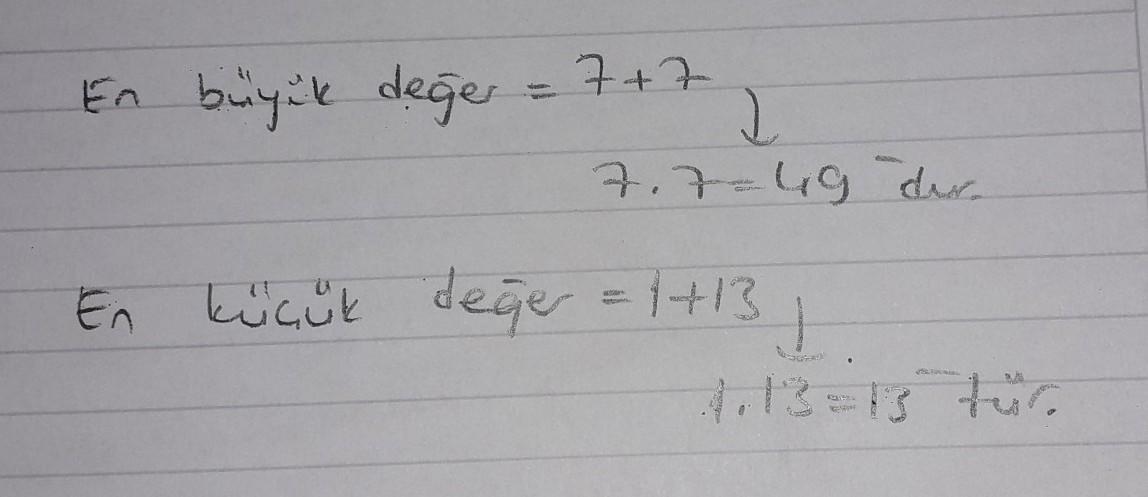 En büyük değer = 7+7
7.7=49 - dur.
En küçük değer = 1+13
1.13=13 - tür.